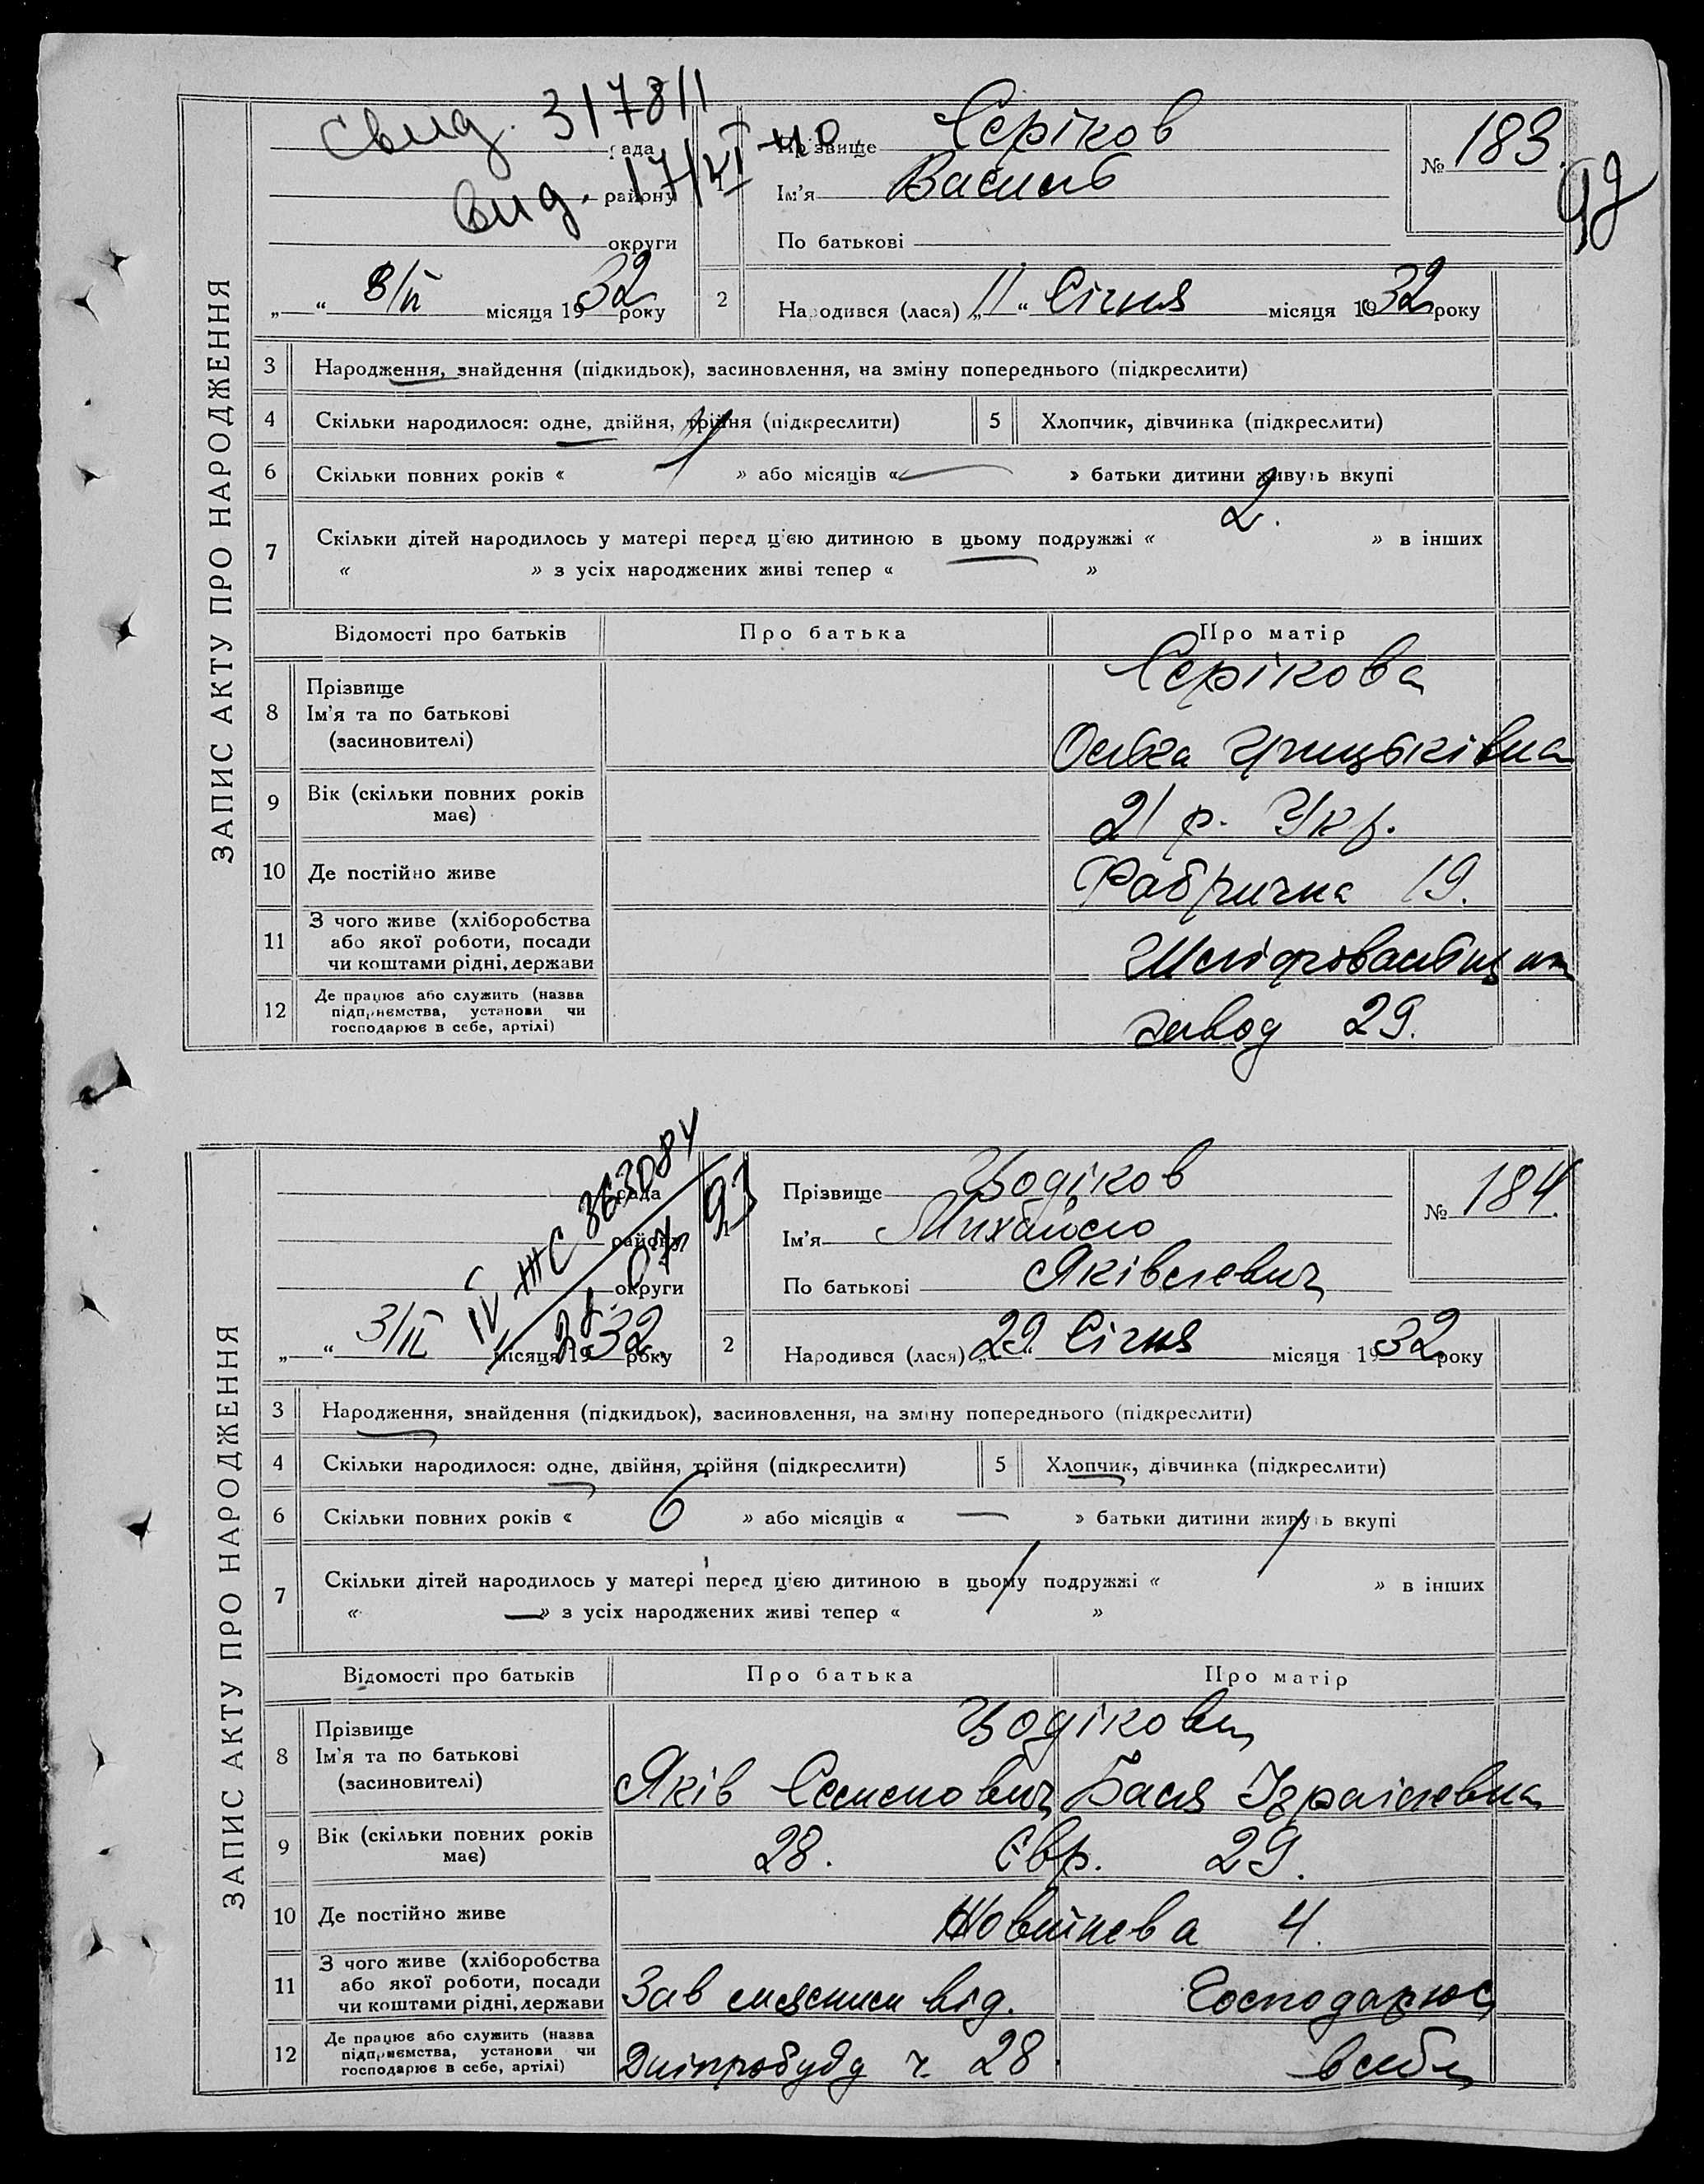 Свид. 317811
вид. 17/VI-40
рада
району
округи
„ “ 8/II місяця 1932 року
1
Прізвище Серіков
Ім’я Василь
По батькові
№ 183.
92
2
Народився (лася) „11“ Січня місяця 1932 року
ЗАПИС АКТУ ПРО НАРОДЖЕННЯ
3 Народження, знайдення (підкидьок), засиновлення, на зміну попереднього (підкреслити)
4 Скільки народилося: одне, двійня, трійня (підкреслити) 5 Хлопчик, дівчинка (підкреслити)
6 Скільки повних років « 1 » або місяців « — » батьки дитини живуть вкупі
7 Скільки дітей народилось у матері перед цією дитиною в цьому подружжі « 2. » в інших
« » з усіх народжених живі тепер « »
Відомості про батьків Про батька Про матір
8 Прізвище
Ім’я та по батькові
(засиновителі)
Серікова
Ольга Грицьківна
9 Вік (скільки повних років має) 21 р. Укр.
10 Де постійно живе Фабрична 19.
11 З чого живе (хліборобства або якої роботи, посади чи коштами рідні, держави
12 Де працює або служить (назва підприємства, установи чи господарює в себе, артілі) завод 29.
рада
району
округи
„ “ 3/II місяця 1932 року
IV ЖС 363084
1
Прізвище Цодіков
Ім’я Михайло
По батькові Яківлевич
№ 184.
2
Народився (лася) „29“ Січня місяця 1932 року
ЗАПИС АКТУ ПРО НАРОДЖЕННЯ
3 Народження, знайдення (підкидьок), засиновлення, на зміну попереднього (підкреслити)
4 Скільки народилося: одне, двійня, трійня (підкреслити) 5 Хлопчик, дівчинка (підкреслити)
6 Скільки повних років « 6 » або місяців « — » батьки дитини живуть вкупі
7 Скільки дітей народилось у матері перед цією дитиною в цьому подружжі « » в інших
« — » з усіх народжених живі тепер « »
Відомості про батьків Про батька Про матір
8 Прізвище
Ім’я та по батькові
(засиновителі)
Цодікови
Яків Семенович Бася Ізраілевна
9 Вік (скільки повних років має) 28. Євр. 29.
10 Де постійно живе 4.
11 З чого живе (хліборобства або якої роботи, посади чи коштами рідні, держави Зав мясним від. Господарює
12 Де працює або служить (назва підприємства, установи чи господарює в себе, артілі) Дніпробуду ч. 28. в себе